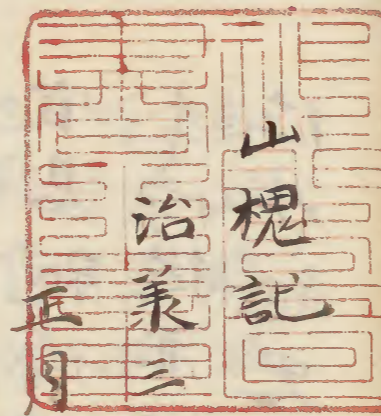 山槐記
治承三
正月